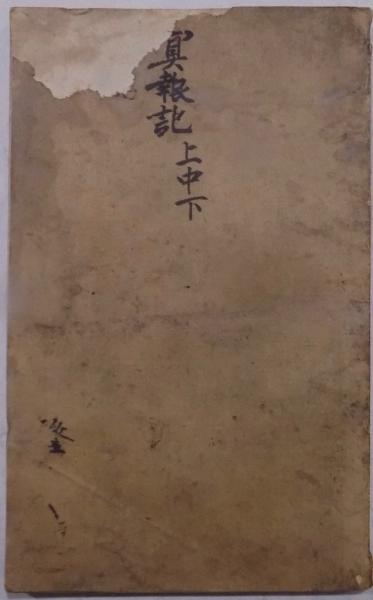 冥報記 上中下